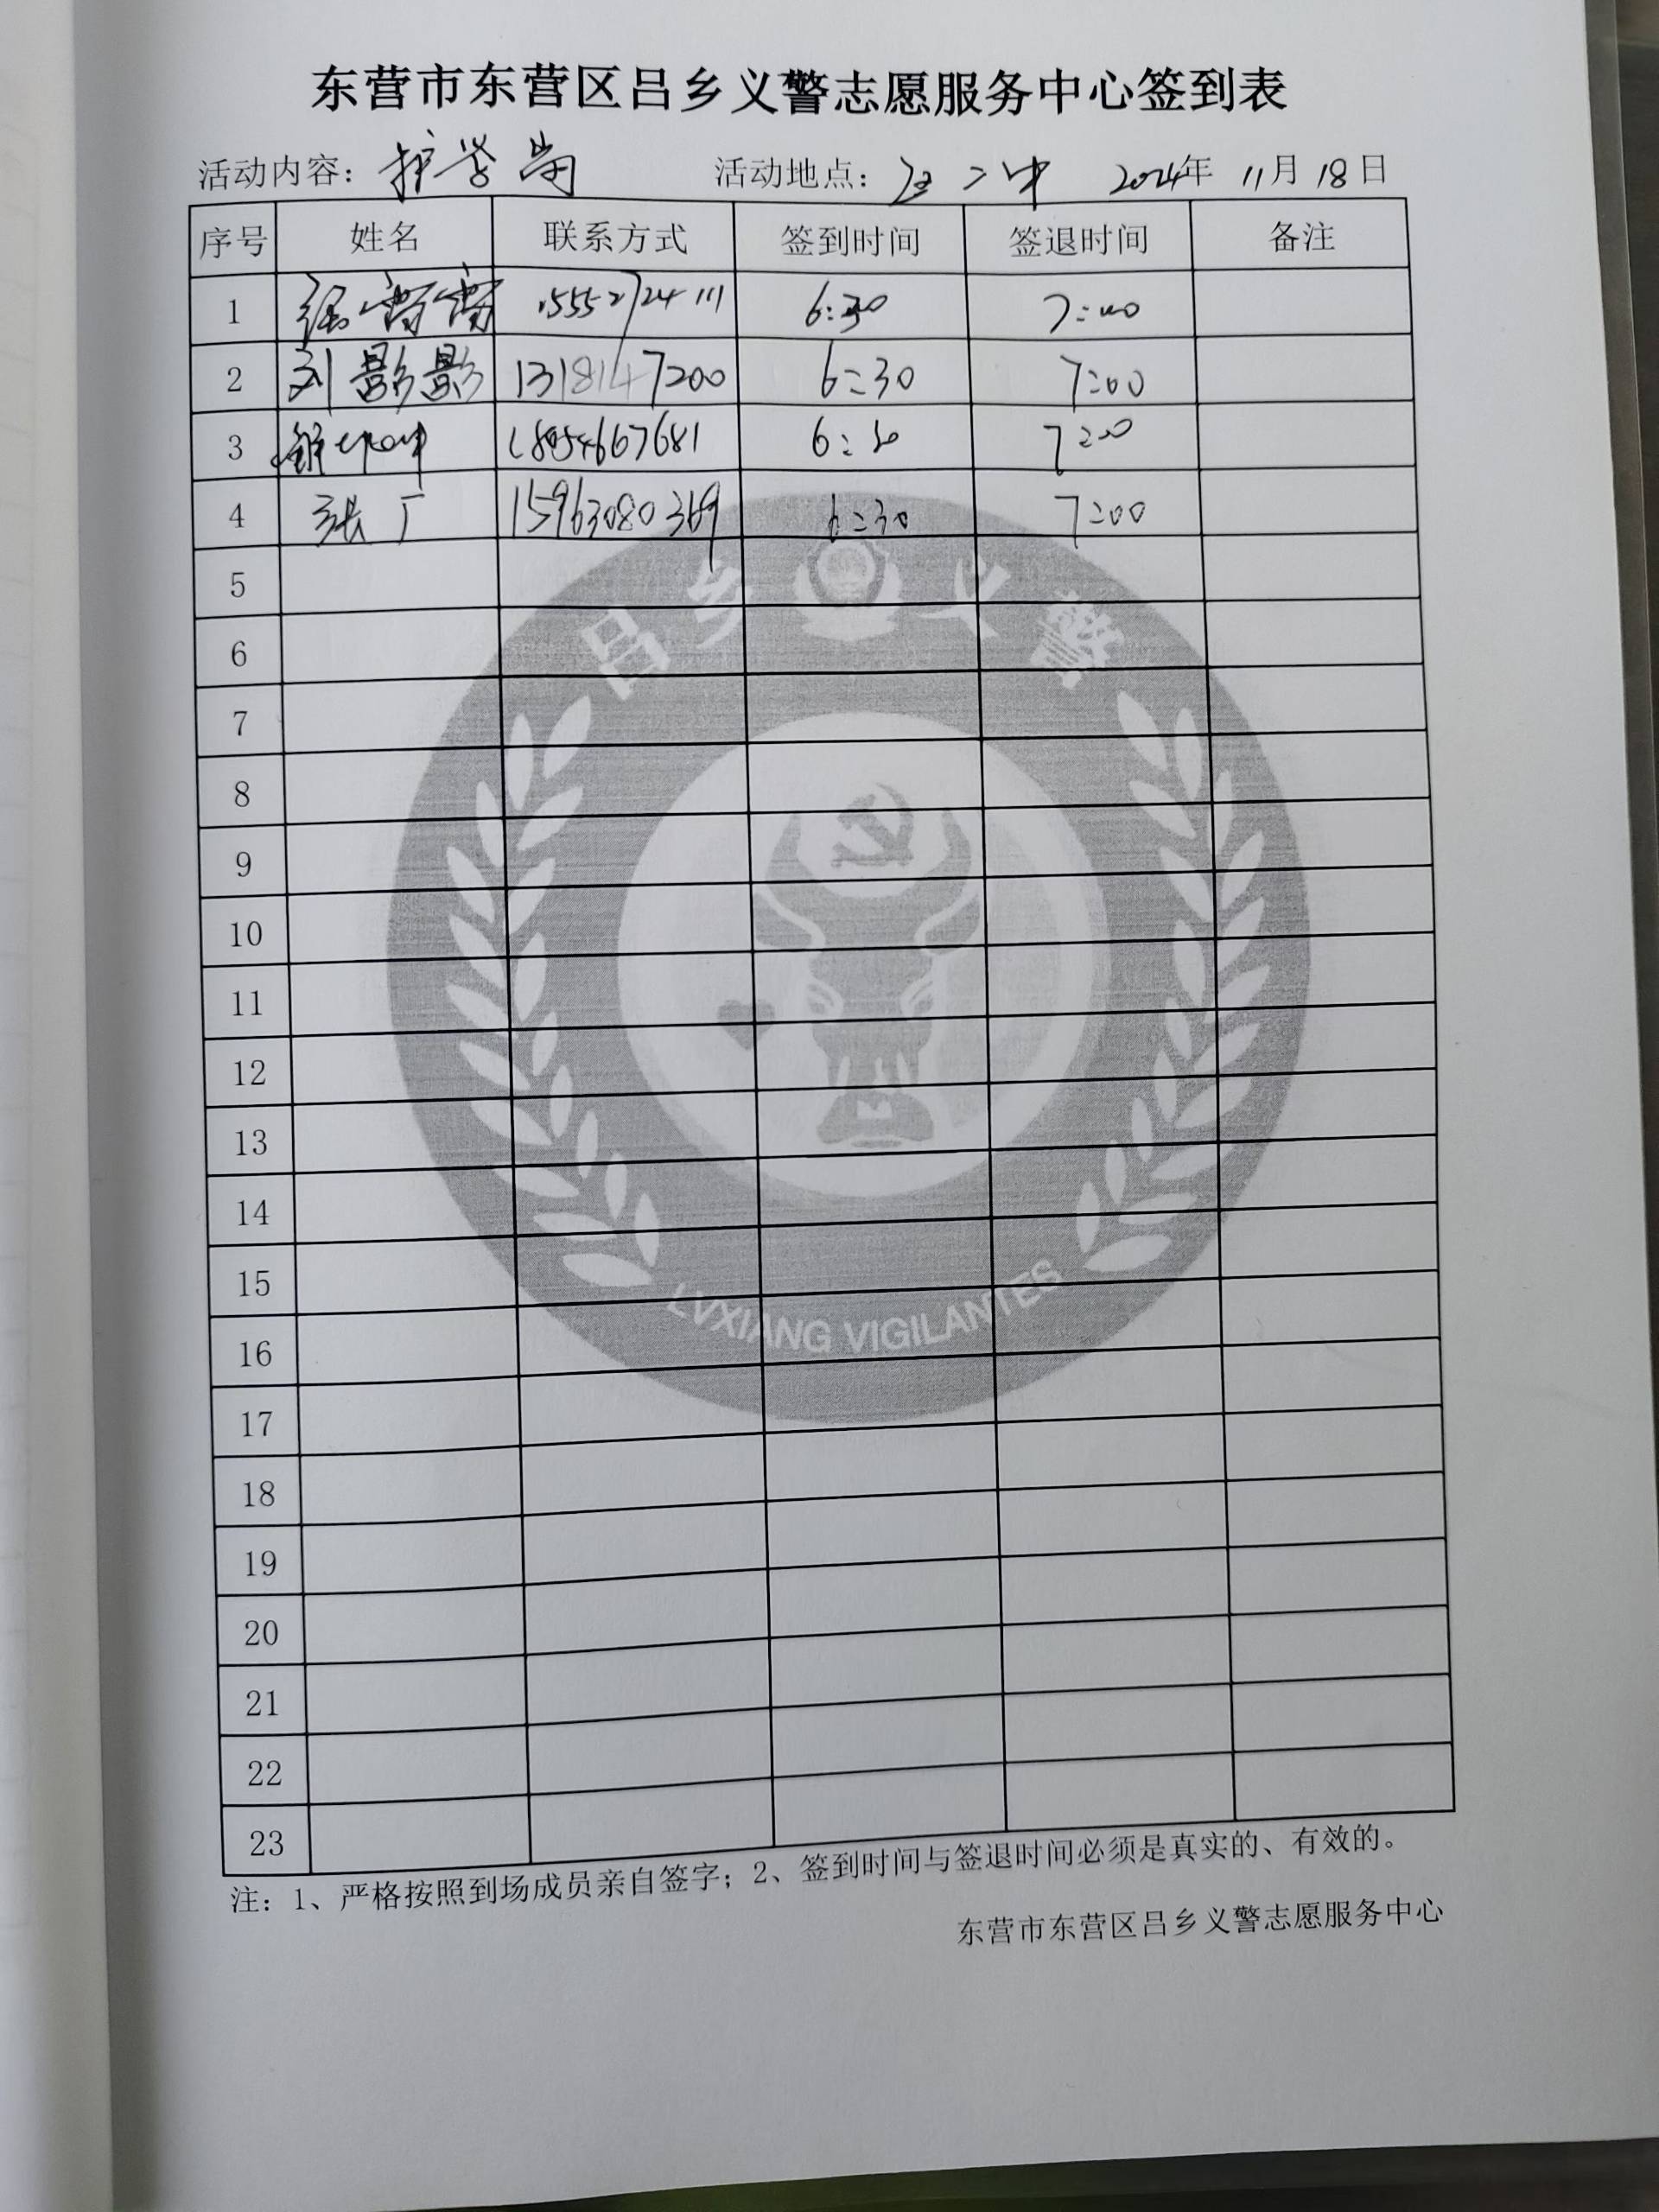 东营市东营区吕乡义警志愿服务中心签到表
活动内容：护学岗 活动地点：二中 2024年 11月 18日
序号 姓名 联系方式 签到时间 签退时间 备注
1 15552724111 6:30 7:00
2 刘影影 13181477200 6:30 7:00
3 18954667681 6:30 7:00
4 张广 15963080369 6:30 7:00
5
6
7
8
9
10
11
12
13
14
15
16
17
18
19
20
21
22
23
吕乡义警
LVXIANG VIGILANTES
注：1、严格按照到场成员亲自签字；2、签到时间与签退时间必须是真实的、有效的。
东营市东营区吕乡义警志愿服务中心